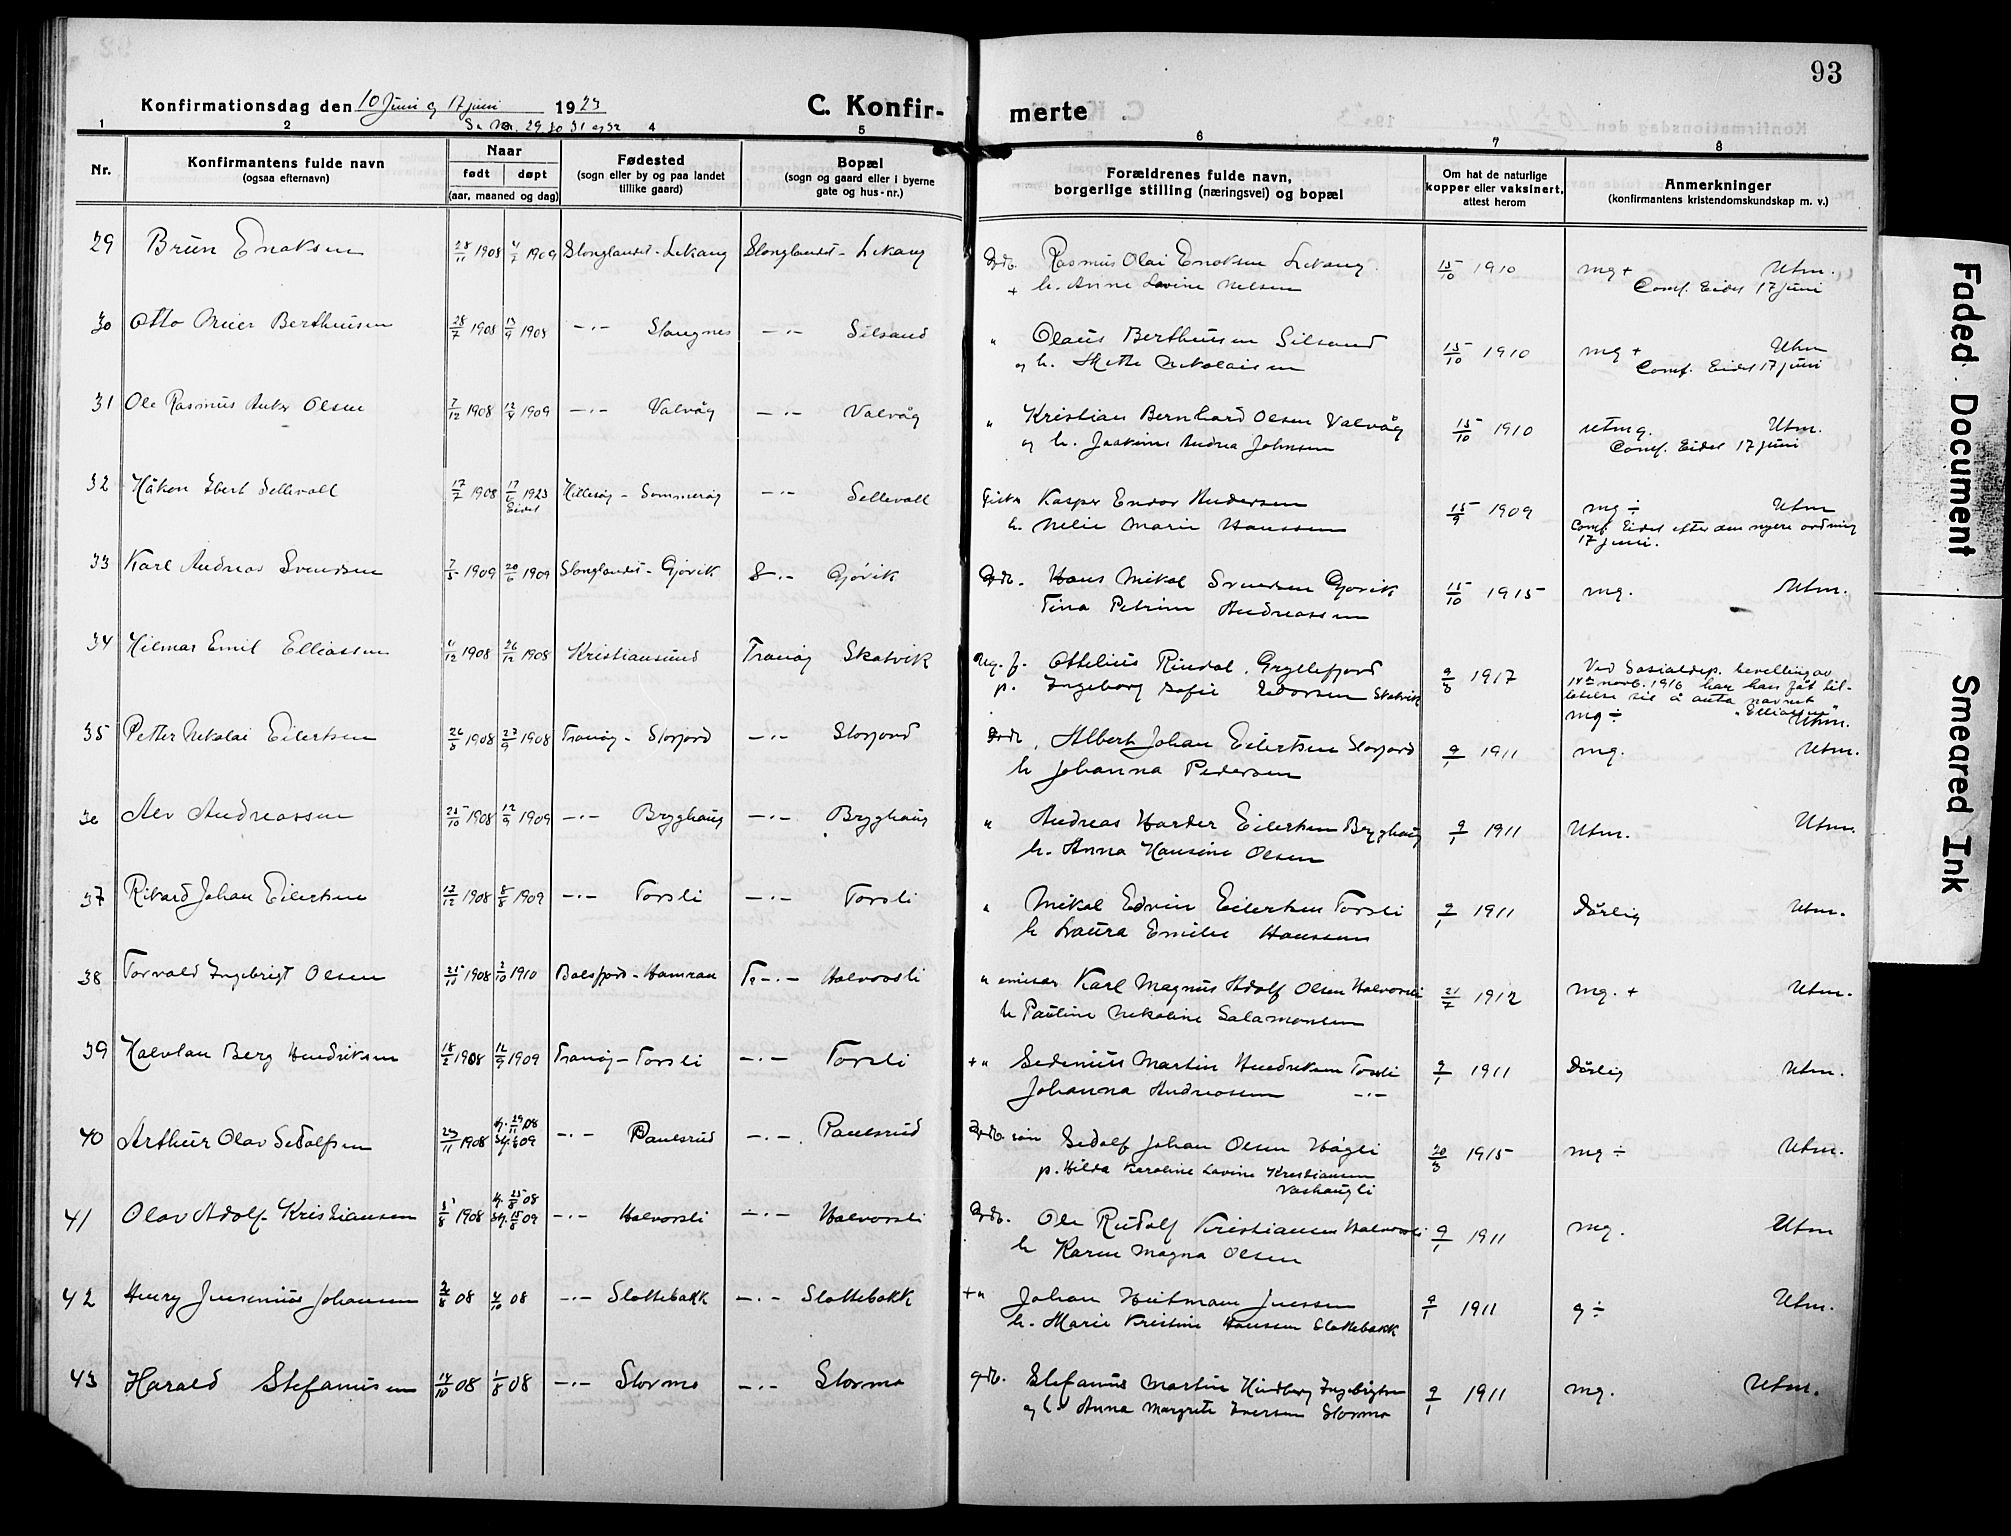 93
Konfirmationsdag den 10 Juni og 17 juni 1923
C. Konfir- merte
Se No. 29 30 31 og 32
1 2 3 4 5 6 7 8
Nr.
Konfirmantens fulde navn
(ogsaa efternavn)
Naar
født døpt
(aar, maaned og dag)
Fødested
(sogn eller by og paa landet
tillike gaard)
Bopæl
(sogn og gaard eller i byerne
gate og hus-nr.)
Forældrenes fulde navn,
borgerlige stilling (næringsvei) og bopæl
Om hat de naturlige
kopper eller vaksinert,
attest herom
Anmerkninger
(konfirmantens kristendomskundskap m. v.)
29 Brun Enoksen 28/11 1908 4/7 1909 Stonglandet - Lekang Stonglandet - Lekang Gdb. Rasmus Olai Enoksen Lekang 15/10 1910 mg + Utm.
+ h. Anne Lovine Nelsen Conf. Eidet 17 juni
30 Otto Meier Bertheusen 28/7 1908 13/9 1908 -"- Stangnes -"- Silsand " Olaus Bertheusen Silsand 15/10 1910 mg + Utm
og h. Mette Nikolaisen Conf. Eidet 17 juni
31 Ole Rasmus Anker Olsen 7/12 1908 12/4 1909 -"- Valvåg -"- Valvåg " Kristian Bernhard Olsen Valvåg 15/10 1910 utmg. Utm.
og h. Joakime Andrea Johnsen Conf. Eidet 17 juni
32 Håkon Ebert Sellevoll 17/7 1908 17/6 1923 Eidet Hillesøy - Sommerøy -"- Sellevoll Kasper Endor Andersen 15/9 1909 mg ÷ Utm
h. Nelie Marie Hanssen Conf. Eidet efter den nyere ordning
17 juni.
33 Karl Andreas Svendsen 7/5 1909 20/6 1909 Stonglandet - Gjøvik S -"- Gjøvik Gdb. Hans Mikal Svendsen Gjøvik 15/10 1915 mg. Utm.
Tina Petrine Andreassen
34 Hilmar Emil Elliassen 4/12 1908 26/12 1908 Kristiansund Tranøy Skatvik Ug. f. Ottelius Rindal, Gryllefjord 9/3 1917 Ved Sosialdep. bevelling av
p. Ingeborg Sofie Edorsen Skatvik 14de novb. 1916 har han fåt til-
latelse til å anta navnet
"Elliassen"
mg ÷ Utm.
35 Petter Nikolai Eilertsen 26/5 1908 27/9 1908 Tranøy - Storjord -"- Storjord Gdb. Albert Johan Eilertsen Storjord 9/1 1911 mg. Utm.
h Johanna Pedersen
36 Alv Andreassen 25/10 1908 12/9 1909 -"- Brygghaug -"- Brygghaug " Andreas Harder Eilertsen Brygghaug 9/1 1911 Utm. Utm.
h. Anna Hansine Olsen
37 Rikard Johan Eilertsen 17/12 1908 8/8 1909 -"- Torsli -"- Torsli " Mikal Edvin Eilertsen Torsli 9/1 1911 Dårlig Utm.
h Laura Emilie Hanssen
38 Torvald Ingebrigt Olsen 25/10 1908 2/10 1910 Balsfjord - Hamran Tr -"- Halvorsli " emisær Karl Magnus Adolf Olsen Halvorsli 21/7 1912 mg. + Utm.
h Pauline Nikoline Salamonsen
39 Halvdan Berg Hendriksen 18/2 1908 12/9 1909 Tranøy - Torsli -"- Torsli + " Sedenius Martin Hendriksen Torsli 9/1 1911 Dårlig Utm.
Johanna Andreasen -"-
40 Arthur Olav Sedolfsen 23/11 1908 Hj. 29/11 08 09 -"- Paulsrud -"- Paulsrud Gdb. søn Sedolf Johan Olsen Hågli 20/3 1915 mg ÷ Utm.
p. Hilda Karoline Lovine Kristiansen
Vashaugli
41 Olav Adolf Kristiansen 5/8 1908 Hj. 25/8 08 15/8 09 -"- Halvorsli -"- Halvorsli Gdb. Ole Rudolf Kristiansen Halvorsli 9/1 1911 mg. Utm
h Karen Magna Olsen
42 Henry Jensenius Johansen 2/8 08 4/10 08 -"- Slottebakk -"- Slottebakk + " Johan Heitmann Jenssen 9/1 1911 g ÷ Utm.
h. Marie Kristine Hanssen Slottebakk
43 Harald Stefanusen 14/10 08 1/8 08 -"- Stormo -"- Stormo gdb. Stefanus Martin Hindberg Ingebrigtsen 9/1 1911 mg. Utm.
og h Anna Margrete Iversen Stormo
Faded Document Smeared Ink